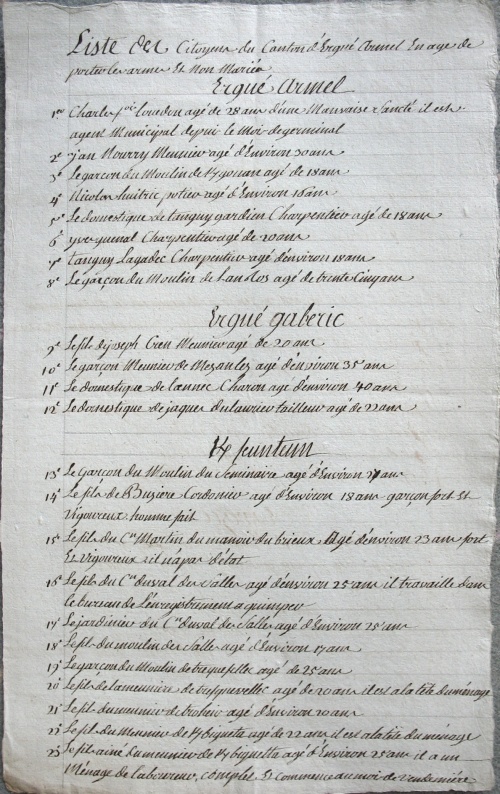 Liste des Citoyens du Canton d'Ergué Armel En age de
porter les armes Et Non Mariés
Ergué Armel
1er Charles foi Loudon agé de 28 ans d'une Mauvaise Santé il est
agent Municipal depuis le Mois de germinal
2e jan Nourry Meunier agé d'Environ 30 ans
3e Le garçon du Moulin de agé de 18 ans
4e Nicolas huitric potier agé d'Environ 18 ans
5e Le domestique de tanguy gardien Charpentier agé de 18 ans
6e yves quenal Charpentier agé de 20 ans
7e tanguy Lagadec Charpentier agé d'environ 18 ans
8e Le garçon du Moulin de Lanros agé de trente Cinq ans
Ergué gabéric
9e Le fils de joseph Cren Meunier agé de 20 ans
10e Le garçon Meunier de Mezanlez agé d'environ 35 ans
11e Le domestique de Loennec Charon agé d'environ 40 ans
12e Le domestique de jaques du laurier tailleur agé de 22 ans
K/feuntun
13e Le Garçon du Moulin du Séminaire agé d'Environ ans
14e Le fils de Buzière Cordonier agé d'Environ 18 ans garçon fort Et
Vigoureux homme fait
15e Le fils du Cen Martin du manoir du brieux agé d'environ 23 ans fort
Et Vigoureux il n'a pas d'état
16e Le fils du Cen duval de Salles agé d'environ 25 ans il travaille dans
le bureau de L'enregistrement a quimper
17e Le jardinier du Cen duval de Salles agé d'Environ 25 ans
18e Le fils du moulin de Salles agé d'Environ 17 ans
19e Le garçon du Moulin de agé de 25 ans
20e Le fils de la meuniere de tresquivellic agé de 20 ans il est a la tête du ménage
21e Le fils du meunier de agé d'Environ 20 ans
22e Le fils du Meunier de K/bignetta agé de 22 ans il est a la tête du ménage
23e Le fils ainé du meunier de K/bignetta agé d'Environ 25 ans il a un
Ménage de laboureur, complet Et commence du moi de vendémière